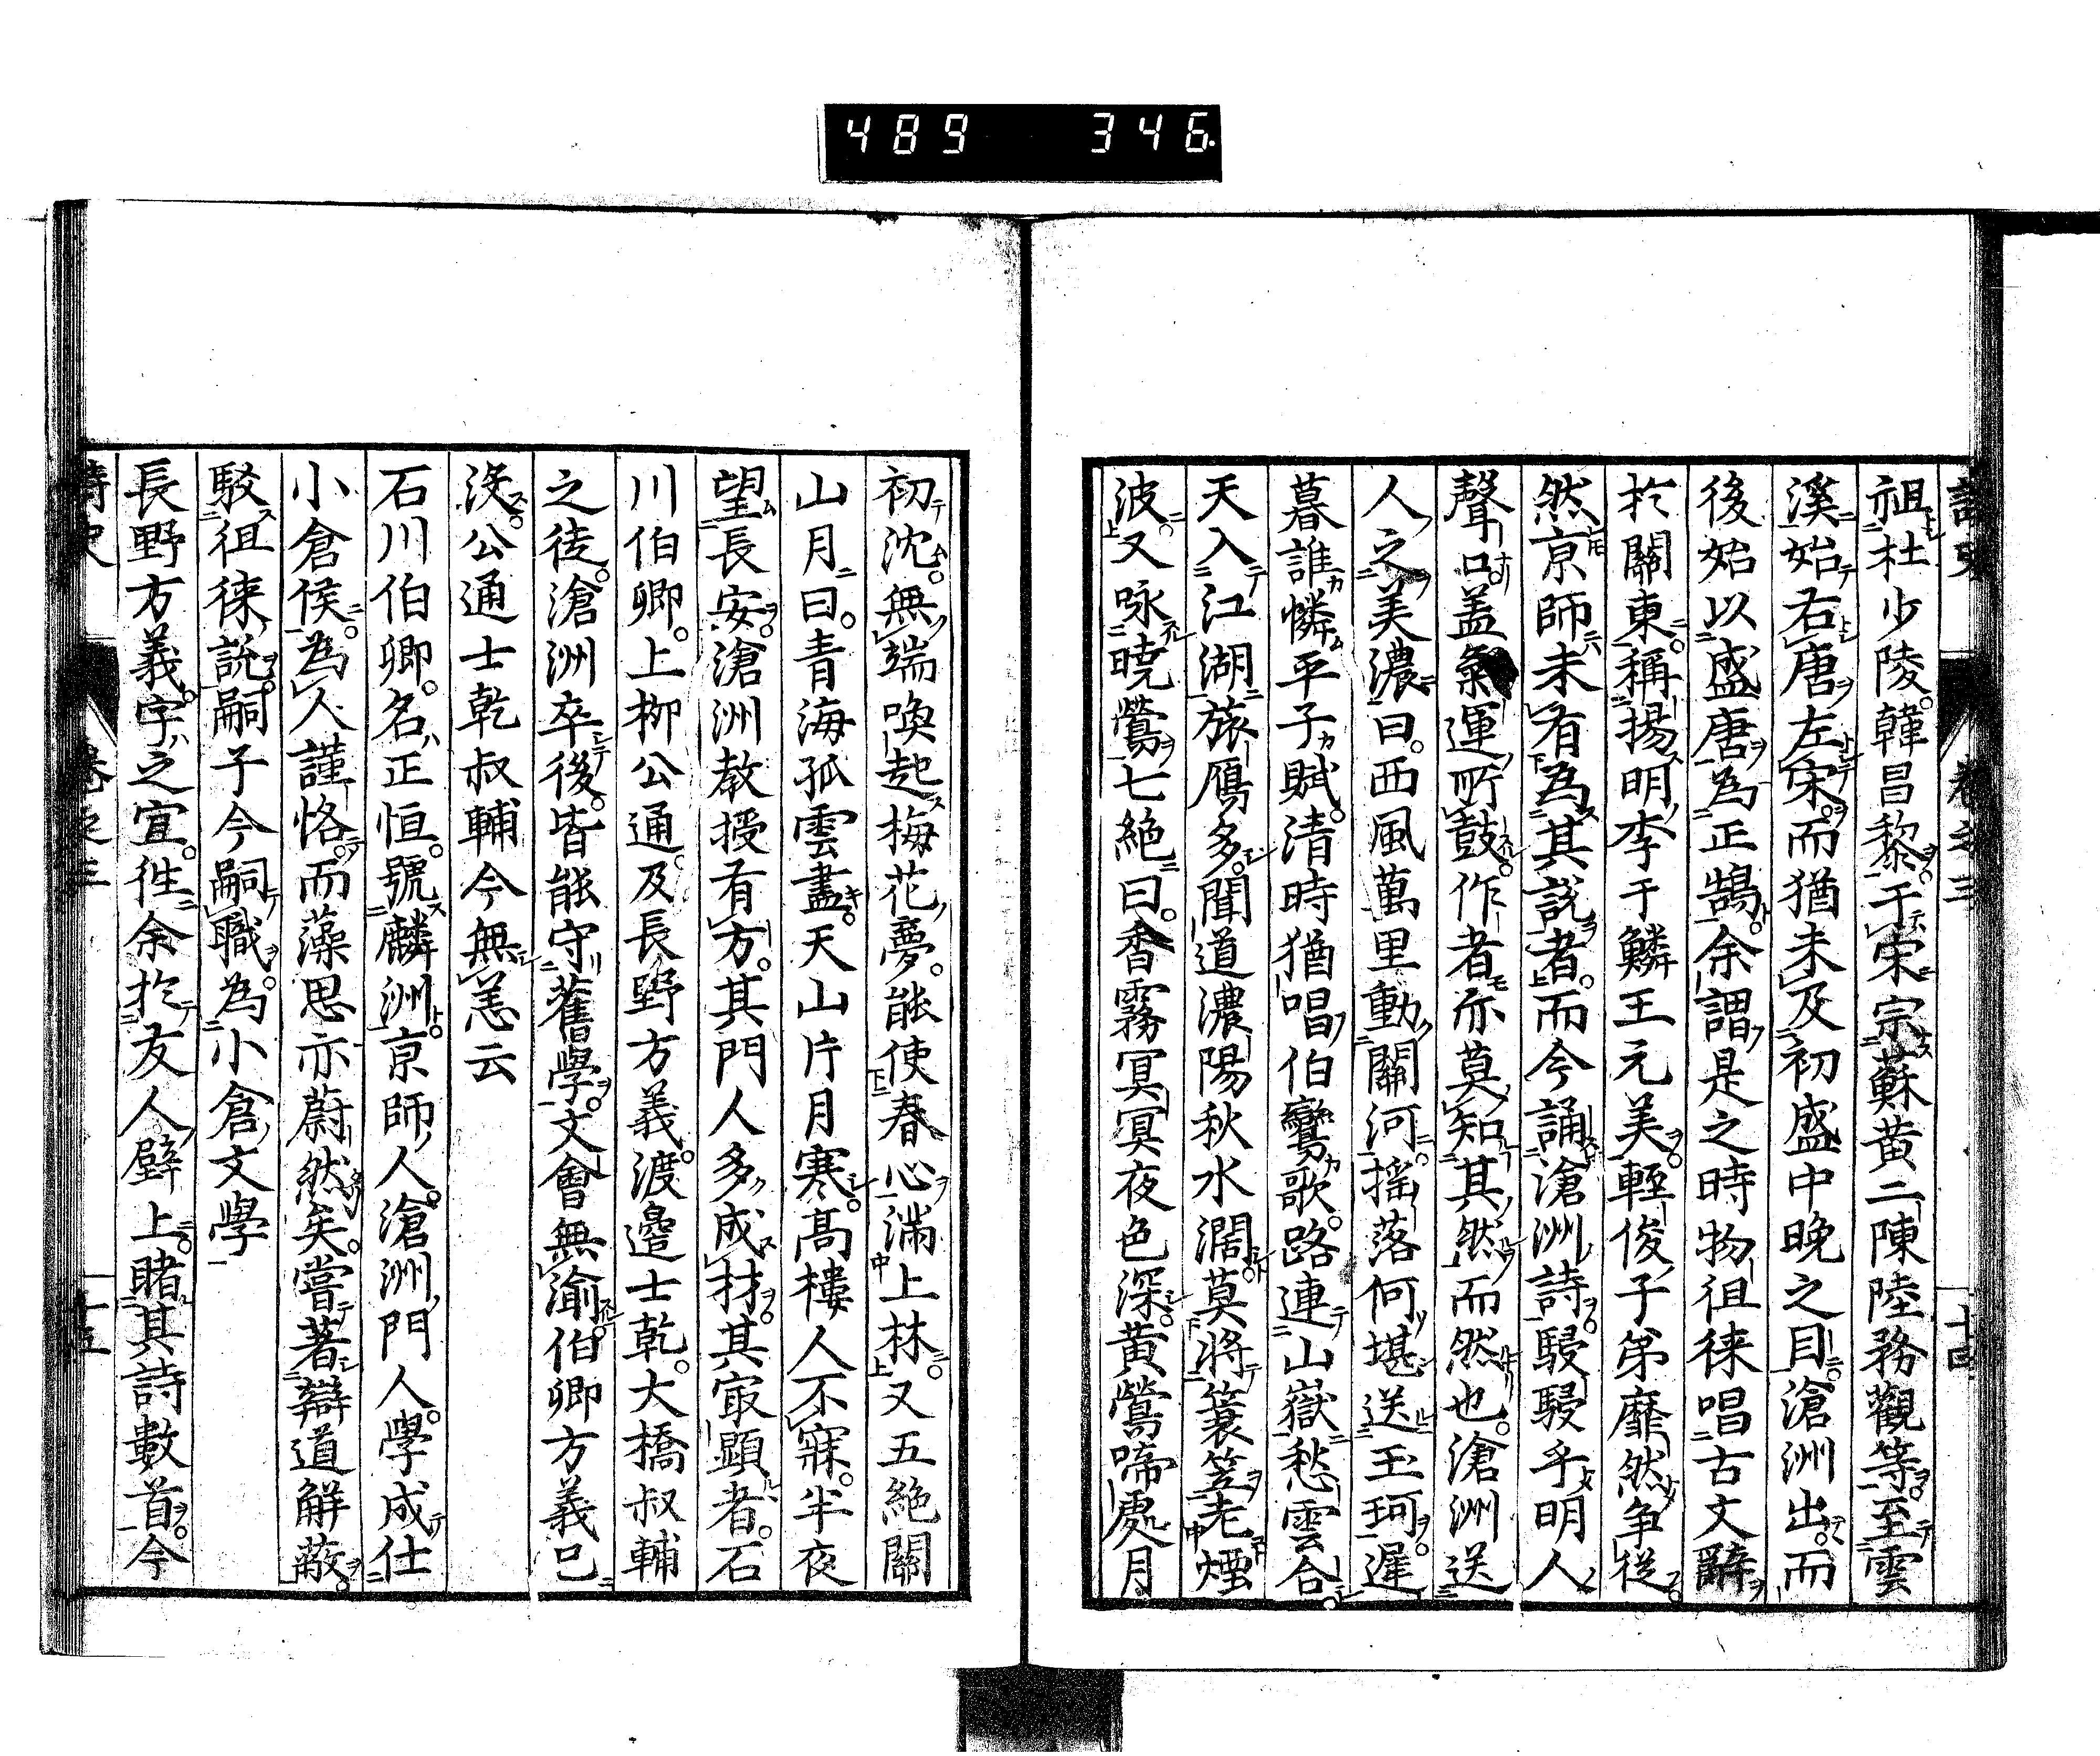 489 346
祖杜少陵韓昌黎于宋宗蘇黄二陳陸務觀等至雲
溪始右唐左宋而猶未及初盛中晩之目滄洲出而
後始以盛唐為正鵠余謂是之時物徂徠唱古文辭
於關東稱揚明李于鱗王元美輕俊子弟靡然争從
然京師未有為其説者而今誦滄洲詩駸駸乎明人
聲口盖氣運所鼓作者亦莫知其然而然也滄洲送
人之美濃曰西風萬里動關河揺落何堪送玉珂遲
暮誰憐平子賦清時猶唱伯鸞歌路連山嶽愁雲合
天入江湖旅鴈多聞道濃陽秋水濶莫將簑笠老煙
波又咏曉鶯七絶曰香霧冥冥夜色深黄鶯啼處月
初沈無端喚起梅花夢能使春心滿上林又五絶關
山月曰青海孤雲盡天山片月寒高樓人不寐半夜
望長安滄洲教授有方其門人多成材其㝡顯者石
川伯卿上柳公通及長野方義渡邊士乾大橋叔輔
之徒滄洲卒後皆能守舊學文會無渝伯卿方義已
没公通士乾叔輔今無恙云
石川伯卿名正恒號麟洲京師人滄洲門人學成仕
小倉侯為人謹恪而藻思亦蔚然矣嘗著辯道解蔽
駁徂徠説嗣子今嗣職為小倉文學
長野方義字之宜徃余於友人壁上睹其詩數首今